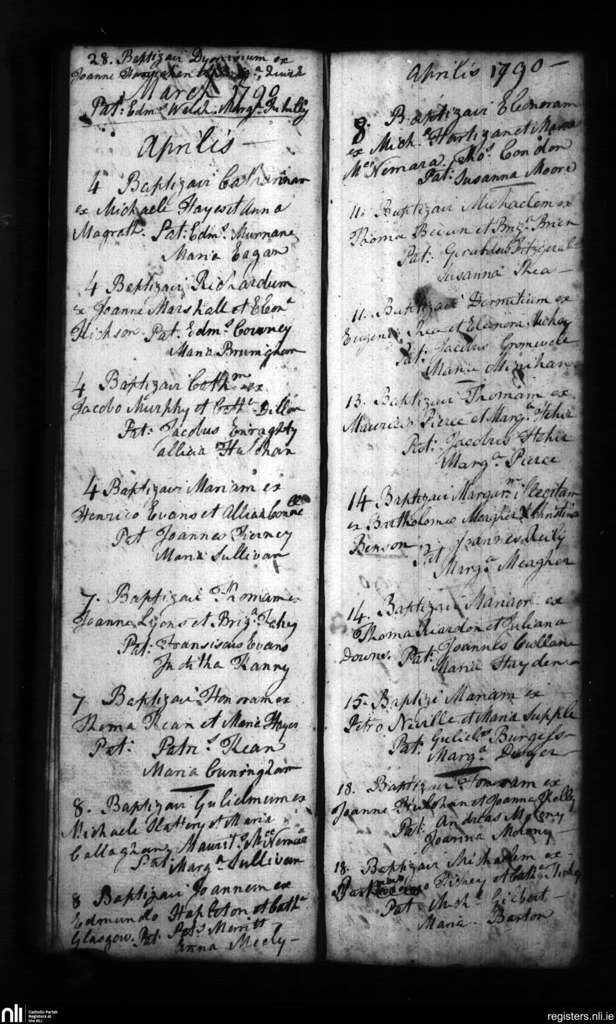 28. Baptizavi Dyonisium ex
Joanne
March 1790
Pat: Edmd. Welsh. Marga.
Aprilis —
4 Baptizavi Catharinam
ex Michaele Hayes et Anna
Magrath. Pat: Edmd. Murnane
Maria Eagan
4 Baptizavi Richardum
ex Joanne Marshall et Eleona
Hickson Pat. Edmd. Cowney
Maria Brumigham
4 Baptizavi Cathm ex
Jacobo Murphy et Cath Dillon
Pat: Jacobus Enraghty
Allicia
4 Baptizavi Mariam ex
Henrico Evans et Allicia
Pat Joannes Tierney
Maria Sullivan
7. Baptizavi Thomam ex
Joanne Lyons et Briga. Fahy
Pat: Fransiscus Evans
Juditha Kanny
7 Baptizavi Honoram ex
Thoma Kean et Maria Hayes
Pat: Patrs. Kean
Maria Cuningham
8. Baptizavi Gulielmum ex
Michaele Slattery et Maria
Callaghan, Maurits. McNemara
Pat: Marga Sullivan
8 Baptizavi Joannem ex
Edmundo Stapleton et Catha
Glasgow. Pat: Merritt
Anna Meely —
Aprilis 1790 —
8. Baptizavi Elenoram
ex Micha. Hartigan et Maria
McNemara. Thos. Condon
Pat: Susanna Moore
11. Baptizavi Michaelem ex
Thoma et Briga. Brien
Pat: Gerardus Fitzgerald
Susanna Shea —
11. Baptizavi Dermitium ex
Eugenio Shea et Eleonora Hickey
Pat: Jacobus
Maria Minihan
13. Baptizavi Thomam ex
Mauricio Pierce et Marga.
Pat: Jacobus
Marga Pierce
14 Baptizavi Margam
ex Bartholomeo Meagher & Christina
Benson Joannes Reily
Pat Marga Meagher
14. Baptizavi Mariam ex
Thoma Riardon et Juliana
Downs. Pat: Joannes Cullane
Maria Hayden
15. Baptizi Mariam ex
Petro Neville et Maria Supple
Pat: Guliels. Burgess
Marga Dwyer —
18. Baptizavi Honoram ex
Joanne et Joanna Kelly
Pat: Andreas Moloney
Joanna Molony —
18. Baptizavi Michaelem ex
Hickey et Catha
Pat: Michl. Gilbert —
Maria Barton
nli
Catholic Parish
Registers at
the NLI
registers.nli.ie